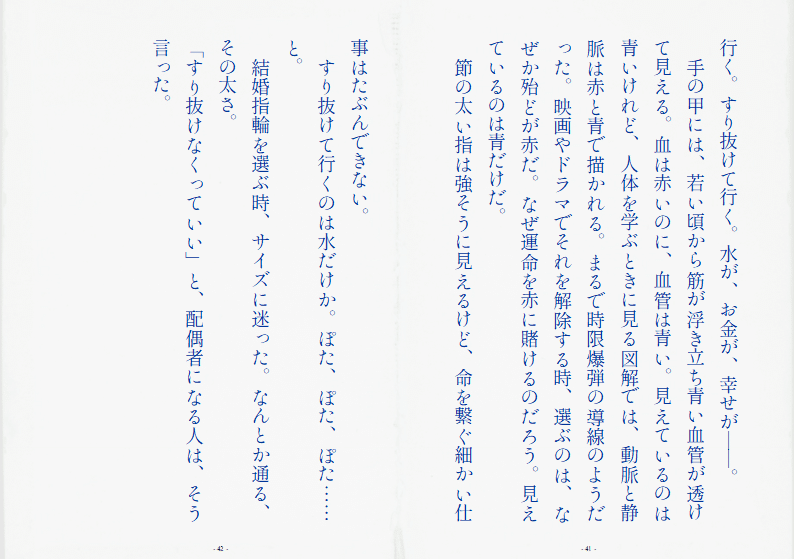 行く。すり抜けて行く。水が、お金が、幸せが――。
手の甲には、若い頃から筋が浮き立ち青い血管が透け
て見える。血は赤いのに、血管は青い。見えているのは
青いけれど、人体を学ぶときに見る図解では、動脈と静
脈は赤と青で描かれる。まるで時限爆弾の導線のようだ
った。映画やドラマでそれを解除する時、選ぶのは、な
ぜか殆どが赤だ。なぜ運命を赤に賭けるのだろう。見え
ているのは青だけだ。
節の太い指は強そうに見えるけど、命を繋ぐ細かい仕
- 41 -
事はたぶんできない。
すり抜けて行くのは水だけか。ぽた、ぽた、ぽた……
と。
結婚指輪を選ぶ時、サイズに迷った。なんとか通る、
その太さ。
「すり抜けなくっていい」と、配偶者になる人は、そう
言った。
- 42 -